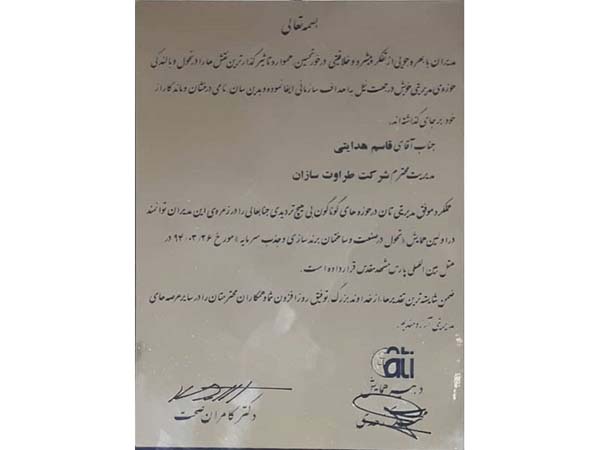 بسمه تعالی
مدیران با بهره جویی از تفکر پیشرو و خلاقیتی درخور تحسین، همواره تاثیرگذارترین نقش ها را در تحول و ماندگی
حوزه ی مدیریتی خویش در جهت نیل به اهداف سازمانی ایفا نموده و بدین سان، نامی درخشان و ماندگار از
خود بر جای گذاشته اند.
جناب آقای قاسم هدایتی
مدیریت محترم شرکت طراوت سازان
عملکرد موفق مدیریتی تان در حوزه های گوناگون بی هیچ تردیدی جنابعالی را در زمره ی این مدیران توانمند
در اولین همایش (تحول در صنعت و ساختمان برندسازی و جذب سرمایه) مورخ ۹۴/۰۳/۲۶ در
هتل بین المللی پارس مشهد مقدس قرار داده است.
ضمن شایسته ترین تقدیرها، از خداوند بزرگ، توفیق روزافزون شما و همکاران محترمتان را در سایر عرصه های
مدیریتی آرزومندیم.
ati
دبیر همایش
دکتر کامران صحت